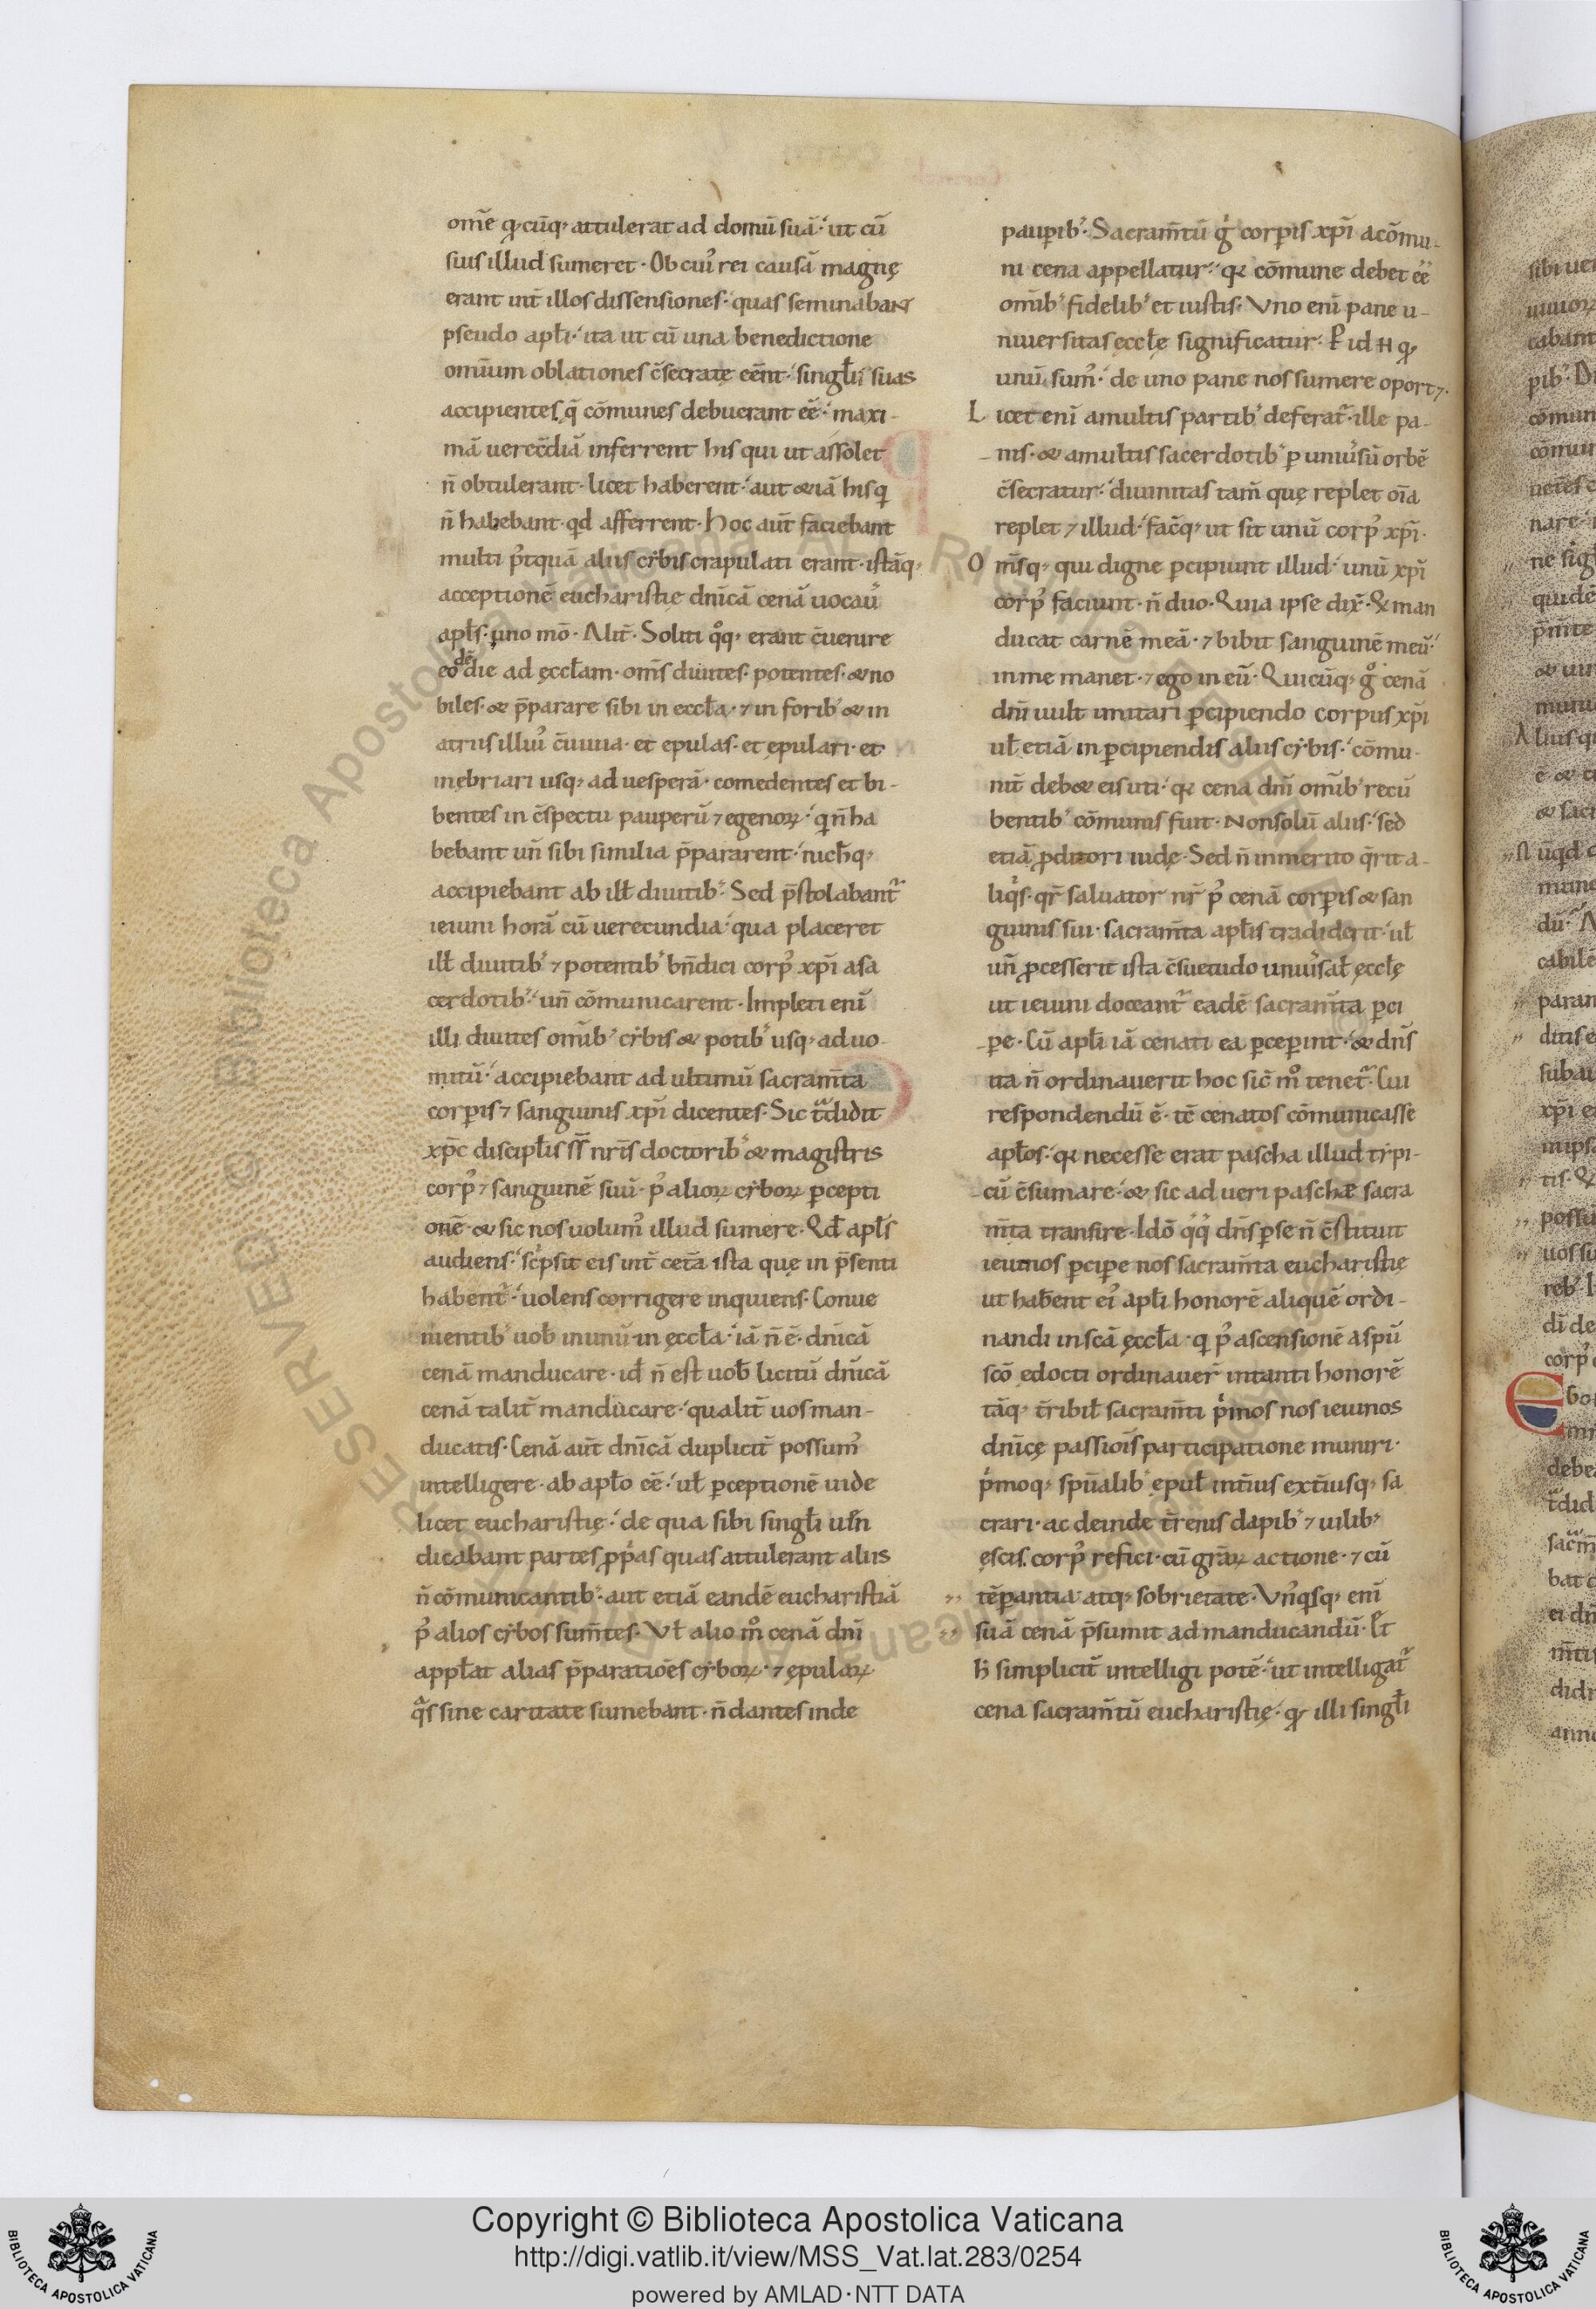 om̄e qꝫ cūqꝫ attulerat ad domū suā· ut cū
suis illud sumeret · Ob cuiꝰ rei causā magnę
erant int̄ illos dissensiones· quas seminabant
pseudo apłi· ita ut cū una benedictione
omīum oblationes c̄secratę eēnt· singłi suas
accipientes q̄ cōmunes debuerant eē· maxi-
mā uerec̄diā inferrent his qui ut assolet
n̄ obtulerant· licet haberent· aut &iā hisq
n̄ habebant qd afferrent· hoc aut̄ faciebant
multi pꝰtquā aliis cybis crapulati erant· istāqꝫ
acceptionē eucharistię dn̄icā cenā uocauͥ
apłs· uno mō· Alit̄· Soliti q̊qꝫ erant c̄uenire
eodē die ad ęccłam· om̄s diuites· potentes· & no
biles· & p̄parare sibi in eccła· ⁊ in foribꝰ & in
atriis illiuꝰ c̄uiuia· et epulas· et epulari· et
inebriari usqꝫ ad uesperā· comedentes et bi-
bentes in c̄spectu pauperū ⁊ egenoꝝ· q n̄ ha
bebant un̄ sibi similia p̄pararent· nich̄qꝫ
accipiebant ab ill̄ diuitibꝰ· Sed p̄stolabant᷑
ieiuni horā cū uerecundia· qua placeret
ill̄ diuitibꝰ ⁊ potentibꝰ bn̄dici corpꝰ xp̄i a sa
cerdotibꝰ· un̄ cōmunicarent· Impleti enī
illi diuites omībꝰ cybis & potibꝰ usqꝫ ad uo-
mitū· accipiebant ad ultimū sacram̄ta
corꝑis ⁊ sanguinis xp̄i dicentes· Sic tͣdidit
xp̄c discipłis ss̄ nr̄is doctoribꝰ & magistris
corpꝰ ⁊ sanguinē suū· pꝰ alioꝝ cyboꝝ ꝑcepti
onē· & sic nos uolumꝰ illud sumere· Qd̄ apłs
audiens· scͥpsit eis int̄ cet̄a ista quę in p̄senti
habent᷑· uolens corrigere inquiens· Conue
nientibꝰ uob̄ in unū· in ęccła· iā n̄ ē· dn̄icā
cenā manducare· id̄ n̄ est uob̄ licitū dn̄icā
cenā talit̄ manducare· qualit̄ uos man-
ducatis· Cenā aut̄ dn̄icā duplicit̄ possumꝰ
intelligere· ab apło eē· ul̄ ꝑceptionē uide
licet eucharistię· de qua sibi singłi uin
dicabant partes ꝓpͥas quas attulerant aliis
n̄ cōmunicantibꝰ· aut etiā eandē eucharistiā
pꝰ alios cybos sum̄tes· Vl̄ alio mͦ cenā dn̄i
appłat alias p̄paratiōes cyboꝝ· ⁊ ępulaꝝ
qͣs sine caritate sumebant· n̄ dantes inde
pauꝑibꝰ· Sacram̄tū gͥ corꝑis xp̄i a cōmu-
ni cena appellatur· qꝛ cōmune debet eē
omībꝰ fidelibꝰ et iustis· Vno enī pane u-
niuersitas ęccłę significatur· P̱ id ħ qꝫ
unū sumꝰ· de uno pane nos sumere oport⁊·
Licet enī a multis partibꝰ deferat᷑· ille pa-
nis· & a multis sacerdotibꝰ ꝑ uniuͥsū orbē
c̄secratur· diuinitas tam̄ quę replet oīa
replet ⁊ illud· facꝫqꝫ ut sit unū corpꝰ xp̄i·
Om̄sqꝫ qui digne ꝑcipiunt illud· unū xp̄i
corpꝰ faciunt· n̄ duo· Quia ipse dix̄· Q man
ducat carnē meā· ⁊ bibit sanguinē meū·
in me manet· ⁊ ego in eū· Quicūqꝫ gͦ cenā
dn̄i uult imitari ꝑcipiendo corpus xp̄i
ul̄ etiā in ꝑcipiendis aliis cybis· cōmu-
nit̄ deb& eis uti· qꝛ cena dn̄i omībꝰ recū
bentibꝰ cōmunis fuit· Non solū aliis· sed
etiā ꝓditori iudę· Sed n̄ inmerito q̄rit a-
liqͥs· qr̄ saluator nr̄ pꝰ cenā corꝑis & san
guinis sui· sacram̄ta apłis tradiderit· ul̄
un̄ ꝓcesserit ista c̄suetudo uniuͥsal̄ ęccłę
ut ieiuni doceant᷑ eadē sacram̄ta ꝑci
ꝑe· Cū apłi iā cenati ea ꝑceꝑint· & dn̄s
ita n̄ ordinauerit hoc sic̄ mͦ tenet᷑· Cui
respondendū ē· iō cenatos cōmunicasse
apłos· qꝛ necesse erat pascha illud typi-
cū c̄sumare· & sic ad ueri paschæ sacra
m̄ta transire· Idō qͥqͥ dn̄s ꝑ se n̄ c̄stituit
ieiunos ꝑciꝑe nos sacram̄ta eucharistię
ut hab̄ent eiꝰ apłi honorē aliquē ordi-
nandi in scā ęccła· q pꝰ ascensionē a spū
scō edocti ordinauer̄ in tanti honorē
tāqꝫ t̄ribił sacram̄ti pͥmos nos ieiunos
dn̄icę passiōis participatione muniri·
pͥmoqꝫ spūalibꝰ epuł int̄ius ext̄iusqꝫ sa
crari· ac deinde t̄renis dapibꝰ ⁊ uilibꝫ
ęscis corpꝰ refici· cū gr̄aꝝ actione· ⁊ cū
tēꝑantia atqꝫ sobrietate· Vn̄qͥsqꝫ enī
suā cenā p̄sumit ad manducandū· Ꝑt
ħ simplicit̄ intelligi potē· ut intelligat᷑
cena sacram̄tū eucharistię· qꝫ illi singłi
Copyright © Biblioteca Apostolica Vaticana
http://digi.vatlib.it/view/MSS_Vat.lat.283/0254
powered by AMLAD·NTT DATA